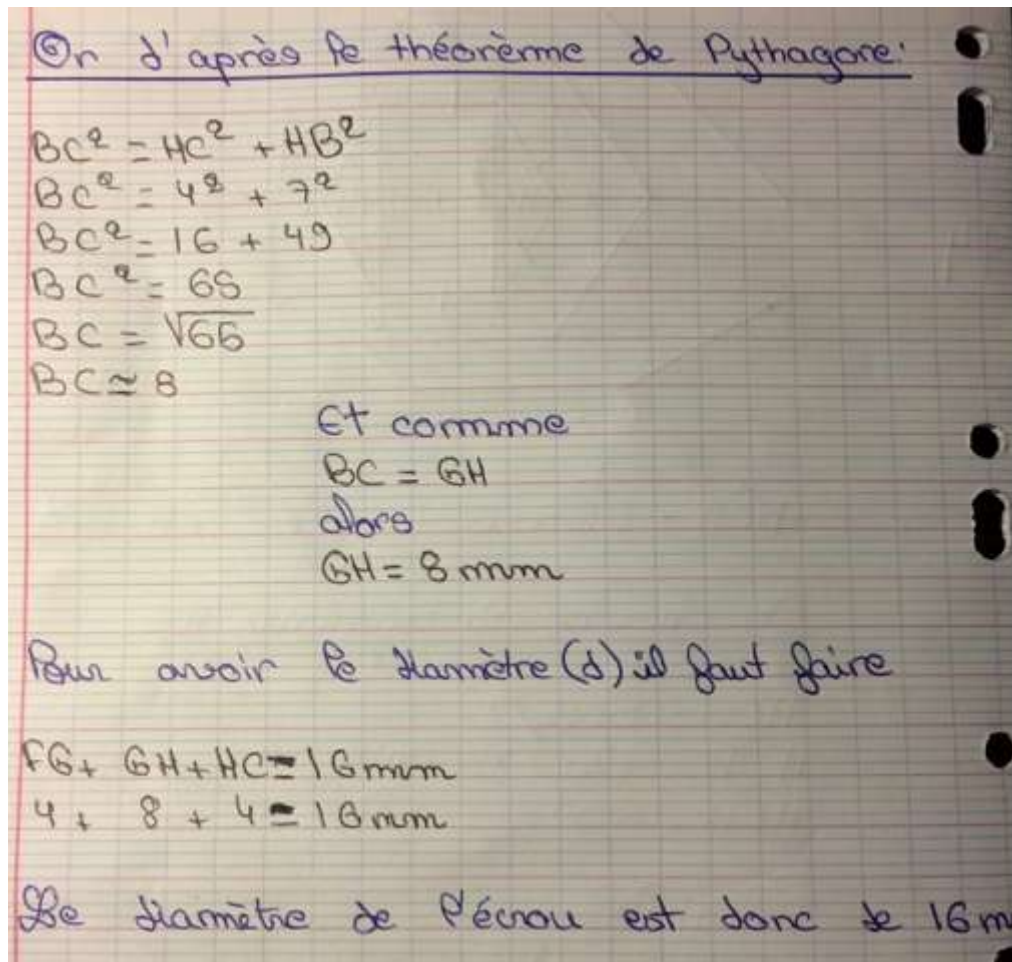 Or d'après le théorème de Pythagore:
BC² = HC² + HB²
BC² = 4² + 7²
BC² = 16 + 49
BC² = 65
BC = √65
BC ≃ 8
Et comme
BC = GH
alors
GH = 8 mm
Pour avoir le diamètre (d) il faut faire
FG + GH + HC = 16 mm
4 + 8 + 4 = 16 mm
Le diamètre de l'écrou est donc de 16 m